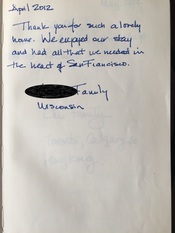 April 2012
Thank you for such a lovely
home. We enjoyed our stay
and had all that we needed in
the heart of San Francisco.
Family
Wisconsin